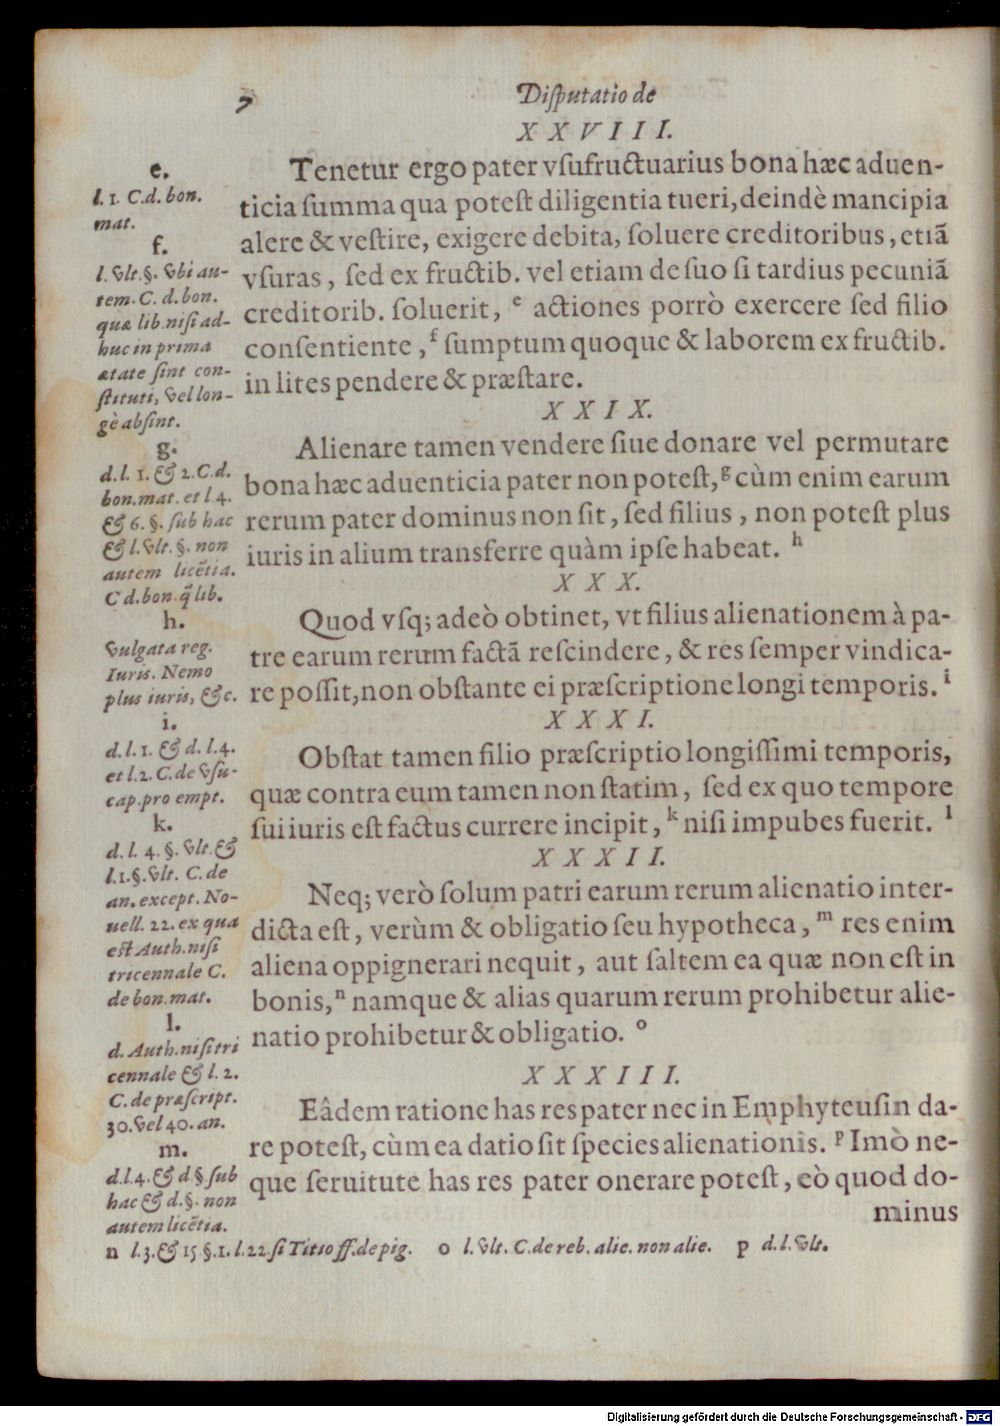 7
Disputatio de
XXVIII.
Tenetur ergo pater vsufructuarius bona hæc aduen-
ticia summa qua potest diligentia tueri, deindè mancipia
alere & vestire, exigere debita, soluere creditoribus, etiã
vsuras, sed ex fructib. vel etiam de suo si tardius pecuniã
creditorib. soluerit, e actiones porrò exercere sed filio
consentiente, f sumptum quoque & laborem ex fructib.
in lites pendere & præstare.
XXIX.
Alienare tamen vendere siue donare vel permutare
bona hæc aduenticia pater non potest, g cùm enim earum
rerum pater dominus non sit, sed filius, non potest plus
iuris in alium transferre quàm ipse habeat. h
XXX.
Quod vsq; adeò obtinet, vt filius alienationem à pa-
tre earum rerum factã rescindere, & res semper vindica-
re possit, non obstante ei præscriptione longi temporis. i
XXXI.
Obstat tamen filio præscriptio longissimi temporis,
quæ contra eum tamen non statim, sed ex quo tempore
sui iuris est factus currere incipit, k nisi impubes fuerit. l
XXXII.
Neq; verò solum patri earum rerum alienatio inter-
dicta est, verùm & obligatio seu hypotheca, m res enim
aliena oppignerari nequit, aut saltem ea quæ non est in
bonis, n namque & alias quarum rerum prohibetur alie-
natio prohibetur & obligatio. o
XXXIII.
Eâdem ratione has res pater nec in Emphyteusin da-
re potest, cùm ea datio sit species alienationis. p Imò ne-
que seruitute has res pater onerare potest, eò quod do-
minus
e.
l. 1. C. d. bon.
mat.
f.
l. vlt. §. vbi au-
tem. C. d. bon.
quæ lib. nisi ad-
huc in prima
ætate sint con-
stituti, vel lon-
gè absint.
g.
d. l. 1. & 2. C. d.
bon. mat. et l. 4.
& 6. §. sub hac
& l. vlt. §. non
autem licẽtia.
C d. bon. q̃ lib.
h.
vulgata reg.
Iuris. Nemo
plus iuris, &c.
i.
d. l. 1. & d. l. 4.
et l. 2. C. de vsu-
cap. pro empt.
k.
d. l. 4. §. vlt. &
l. 1. §. vlt. C. de
an. except. No-
uell. 22. ex qua
est Auth. nisi
tricennale C.
de bon. mat.
l.
d. Auth. nisi tri
cennale & l. 2.
C. de præscript.
30. vel 40. an.
m.
d. l. 4. & d. §. sub
hac & d. §. non
autem licẽtia.
n l. 3. & 15 §. 1. l. 22. si Titio ff. de pig. o l. vlt. C. de reb. alie. non alie. p d. l. vlt.
Digitalisierung gefördert durch die Deutsche Forschungsgemeinschaft - DFG